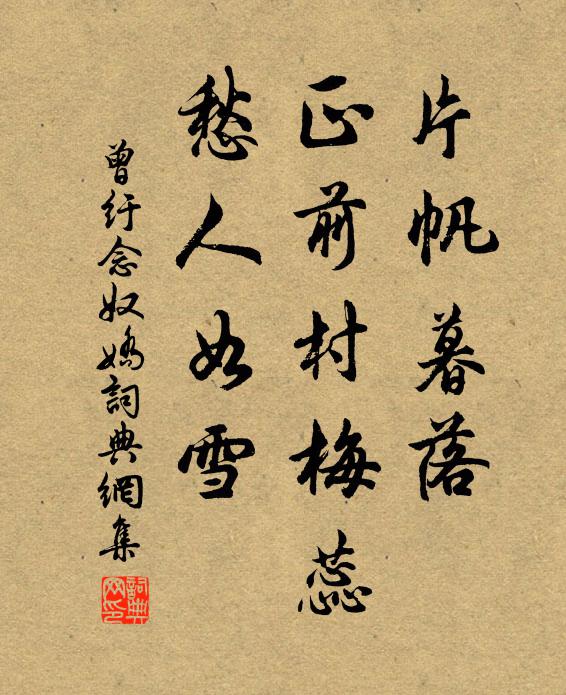 片帆暮落
正前村梅蕊
愁人如雪
曾紆念奴嬌詞典網集
詞典网印